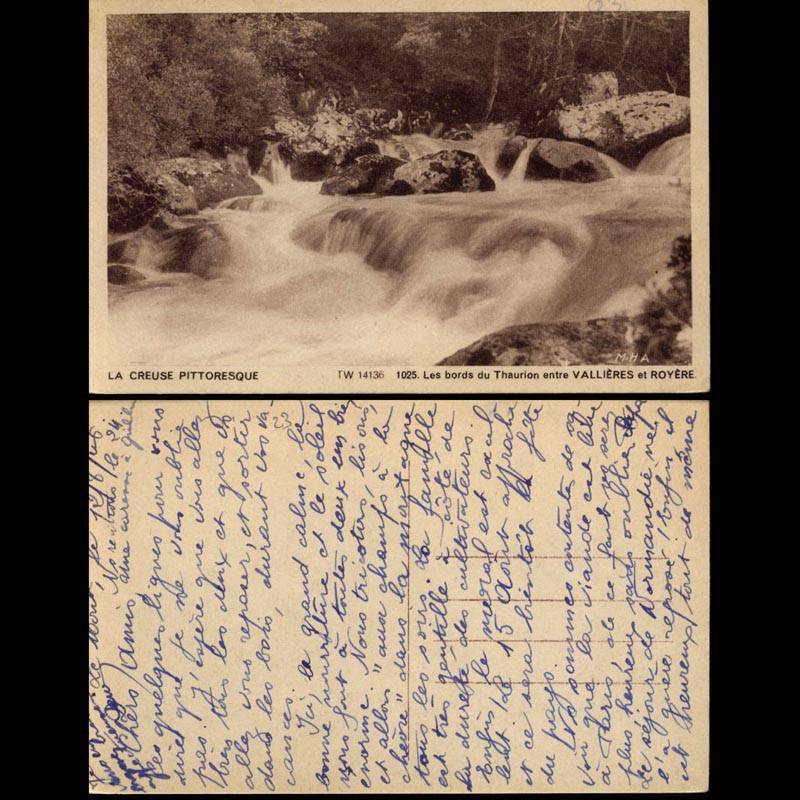 (23)
M-HA
LA CREUSE PITTORESQUE TW 14136 1025. Les bords du Thaurion entre VALLIÈRES et ROYÈRE.
le 12/8/46
Nous le 24
Chers Amis
quelques lignes pour vous
dire que je ne vous oublie
pas. J'espère que vous allez
bien tous les deux et que vous
allez vous reposer, et porter
dans les bois, durant vos va-
cances.
Ici, le grand calme, la
bonne nourriture et le soleil
nous font à toutes deux un bien
énorme. Nous tricotons, lisons
et allons "aux champs à la
chèvre" dans la montagne
tous les soirs. La famille
est très gentille à côté de
la dureté des cultivateurs.
Enfin, le moral est excel-
lent. Le 15 Août approche
et ce sera bientôt la fête
du pays.
Ns sommes contentes de sa-
voir que la viande est libre
à Paris, de ce fait on sera
plus heureux sans oublier
Le séjour de Normandie ne
l'a guère reposé. Enfin, il
est heureux tout de même